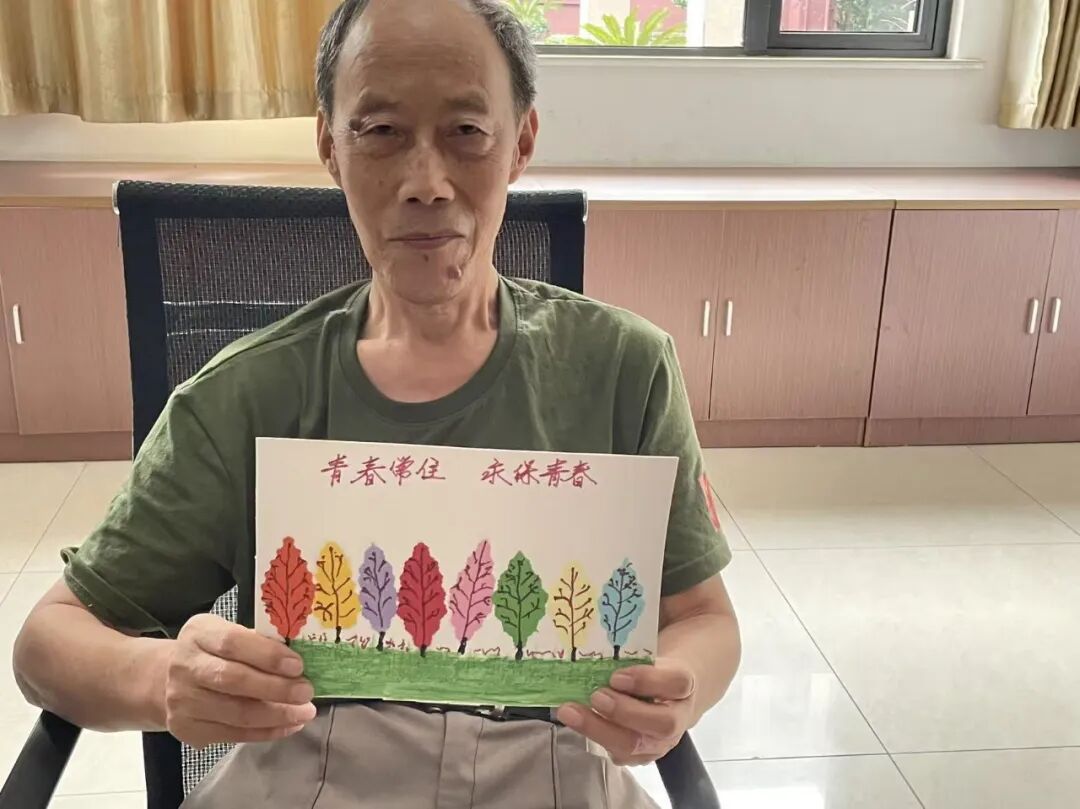 青春常住 永保青春